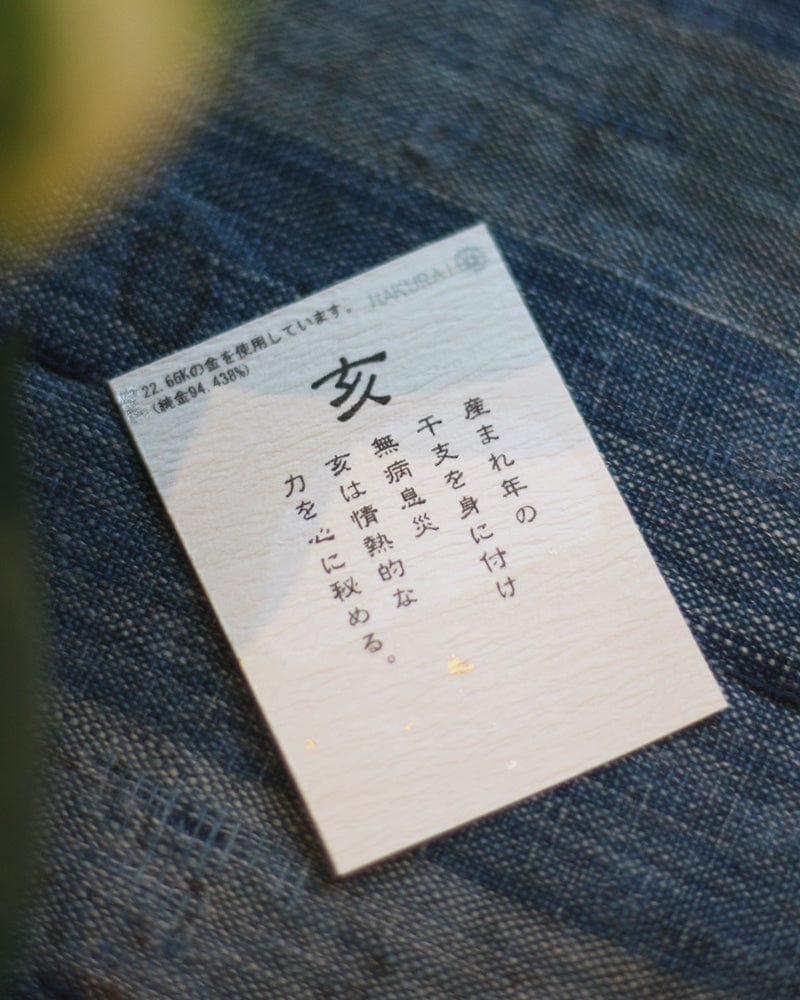 22.66Kの金を使用しています。
(純金94.438%)
HAKURAI
亥
産まれ年の
干支を身に付け
無病息災
亥は情熱的な
力を心に秘める。